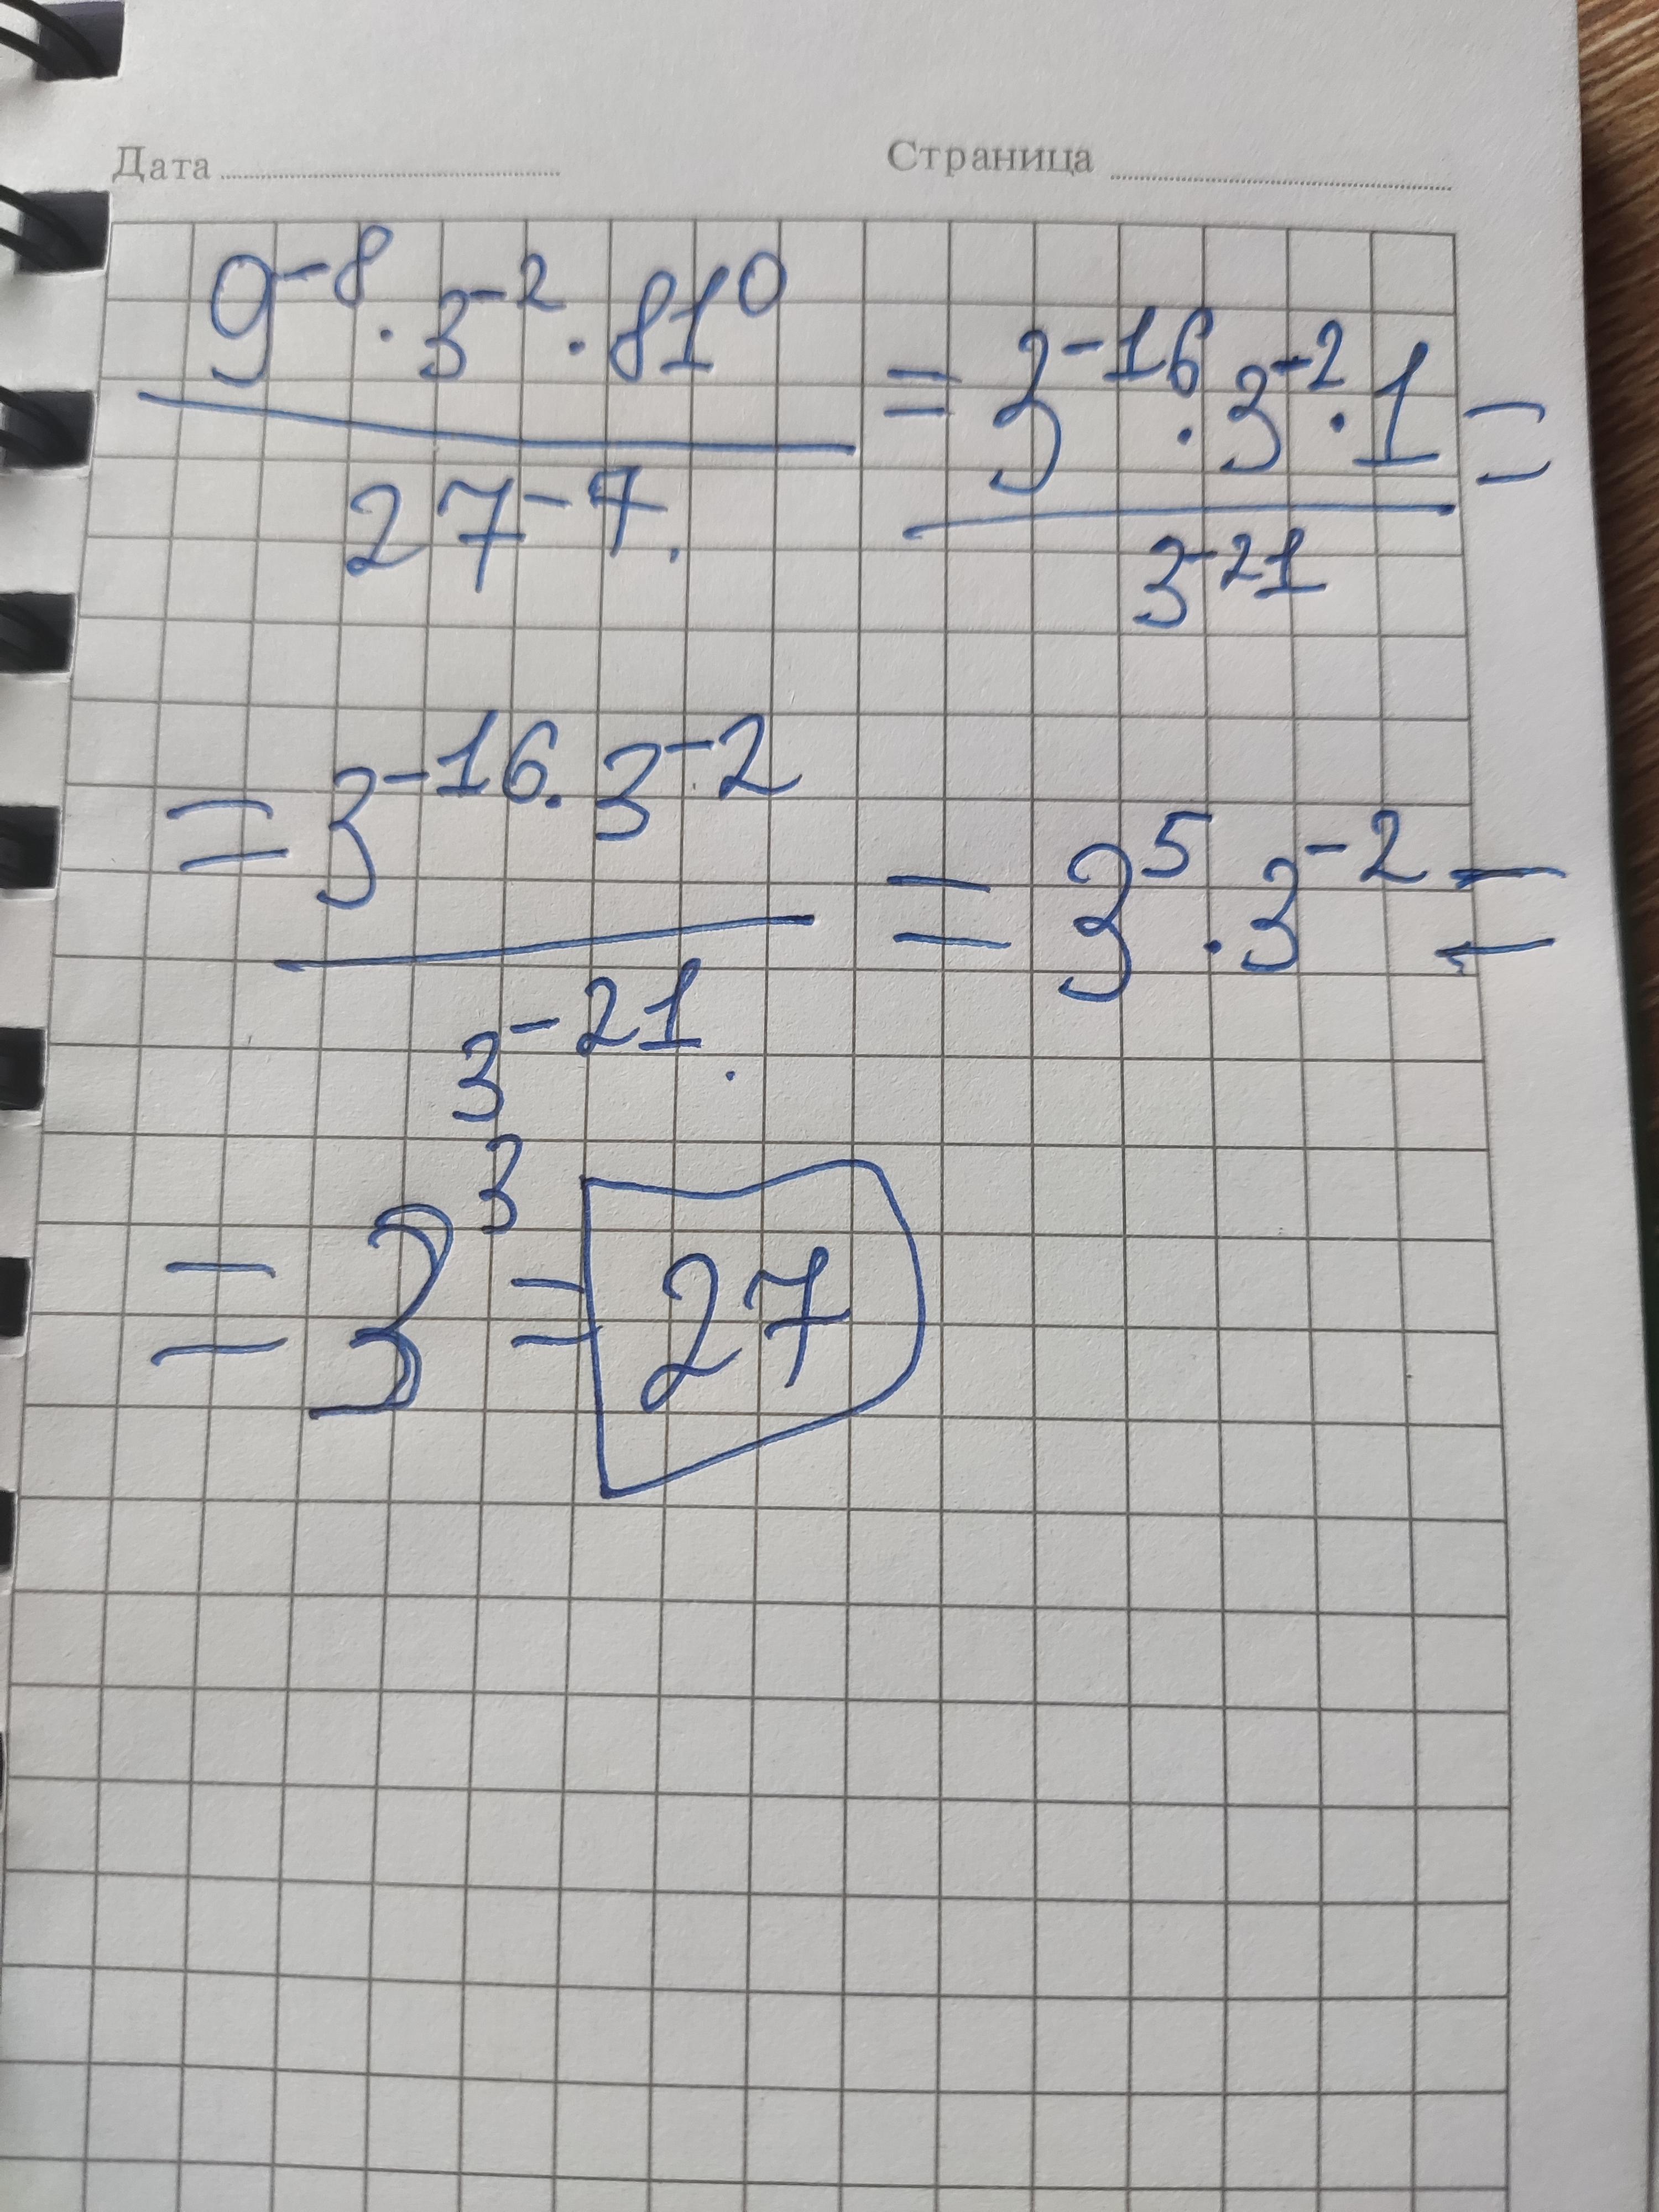 Дата Страница
9⁻⁸ · 3⁻² · 81⁰ / 27⁻⁷. = 3⁻¹⁶ · 3⁻² · 1 / 3⁻²¹ =
= 3⁻¹⁶ · 3⁻² / 3⁻²¹. = 3⁵ · 3⁻² =
= 3³ = 27